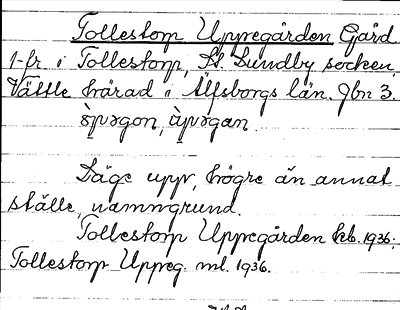 Tollestorp Uppregården Gård
1 fr. i Tollestorp, St. Lundby socken,
Vättle härad i Älfsborgs län. Jbn 3.
Läge uppe, högre än annat
ställe, namngrund.
Tollestorp Uppregården kb. 1936;
Tollestorp Uppreg. ml. 1936.